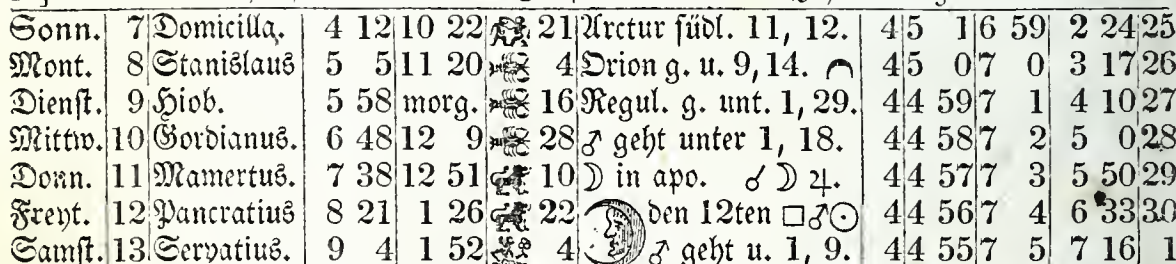 Sonn. 7 Domicilla. 4 12 10 22 21 Arctur südl. 11, 12. 4 5 1 6 59 2 24 25
Mont. 8 Stanislaus 5 5 11 20 4 Orion g. u. 9, 14. 4 5 0 7 0 3 17 26
Dienst. 9 Hiob. 5 58 morg. 16 Regul. g. unt. 1, 29. 4 4 59 7 1 4 10 27
Mittw. 10 Gordianus. 6 48 12 9 28 ♂ geht unter 1, 18. 4 4 58 7 2 5 0 28
Donn. 11 Mamertus. 7 38 12 51 10 ☽ in apo. ☌ ☽ ♃. 4 4 57 7 3 5 50 29
Freyt. 12 Pancratius 8 21 1 26 22 den 12ten □ ♂ ☉ 4 4 56 7 4 6 33 30
Samst. 13 Servatius. 9 4 1 52 4 ♂ geht u. 1, 9. 4 4 55 7 5 7 16 1